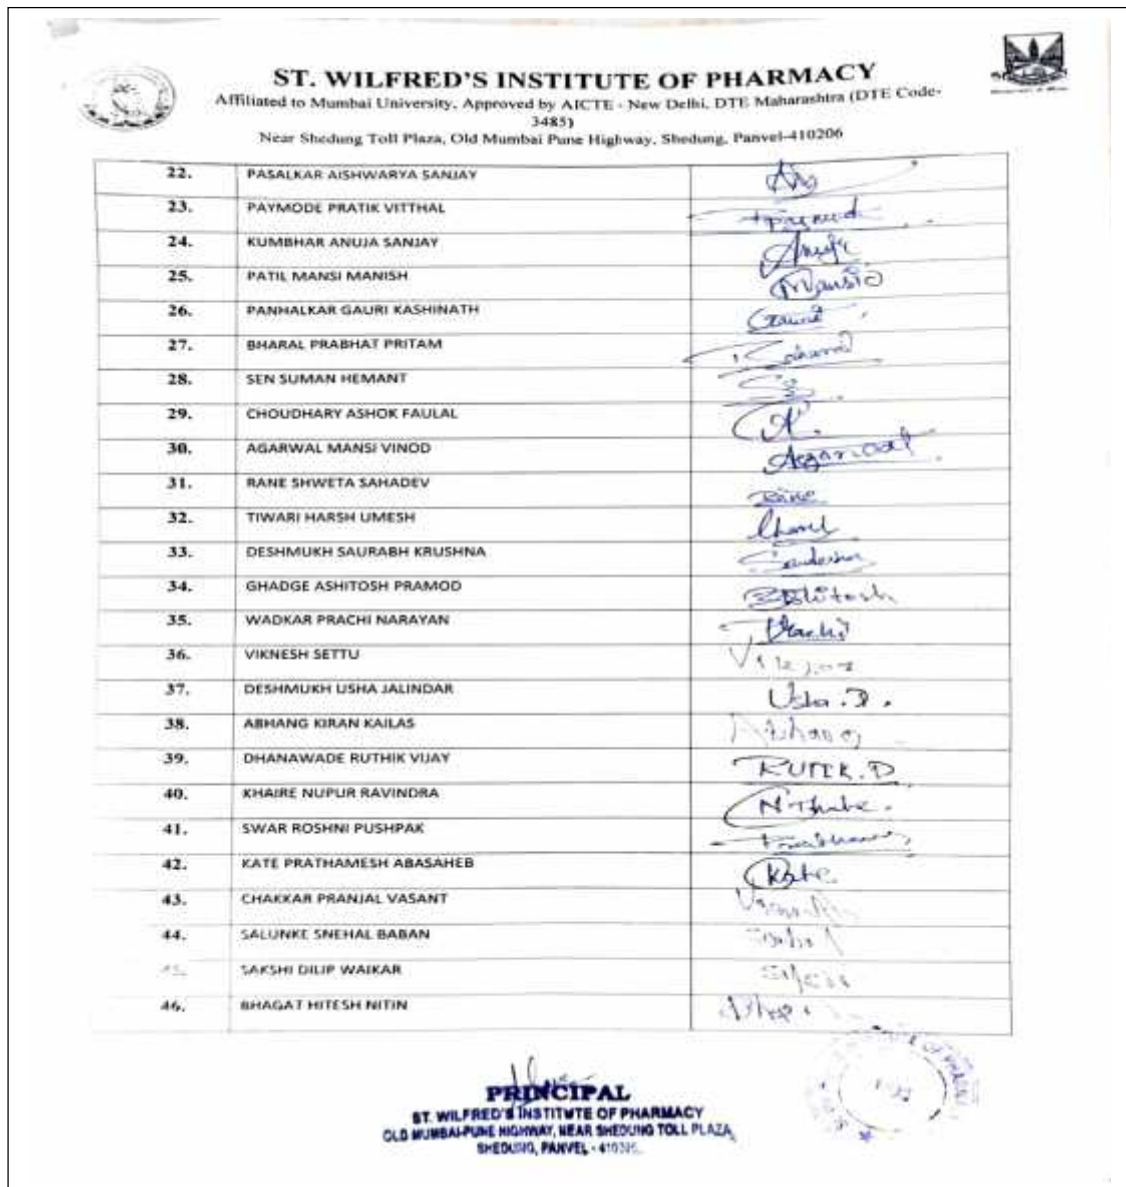 ST. WILFRED'S INSTITUTE OF PHARMACY
Affiliated to Mumbai University, Approved by AICTE - New Delhi, DTE Maharashtra (DTE Code-
3485)
Near Shedung Toll Plaza, Old Mumbai Pune Highway, Shedung, Panvel-410206
22. PASALKAR AISHWARYA SANJAY
23. PAYMODE PRATIK VITTHAL
24. KUMBHAR ANUJA SANJAY Anuja
25. PATIL MANSI MANISH Mansi
26. PANHALKAR GAURI KASHINATH Gauri
27. BHARAL PRABHAT PRITAM
28. SEN SUMAN HEMANT
29. CHOUDHARY ASHOK FAULAL
30. AGARWAL MANSI VINOD Agarwal
31. RANE SHWETA SAHADEV Rane
32. TIWARI HARSH UMESH
33. DESHMUKH SAURABH KRUSHNA
34. GHADGE ASHITOSH PRAMOD Ashitosh
35. WADKAR PRACHI NARAYAN Prachi
36. VIKNESH SETTU
37. DESHMUKH USHA JALINDAR Usha.D.
38. ABHANG KIRAN KAILAS
39. DHANAWADE RUTHIK VIJAY RUTIK.D
40. KHAIRE NUPUR RAVINDRA
41. SWAR ROSHNI PUSHPAK
42. KATE PRATHAMESH ABASAHEB Kate
43. CHAKKAR PRANJAL VASANT
44. SALUNKE SNEHAL BABAN
45. SAKSHI DILIP WAIKAR
46. BHAGAT HITESH NITIN
PRINCIPAL
ST. WILFRED'S INSTITUTE OF PHARMACY
OLD MUMBAI-PUNE HIGHWAY, NEAR SHEDUNG TOLL PLAZA,
SHEDUNG, PANVEL - 410206.